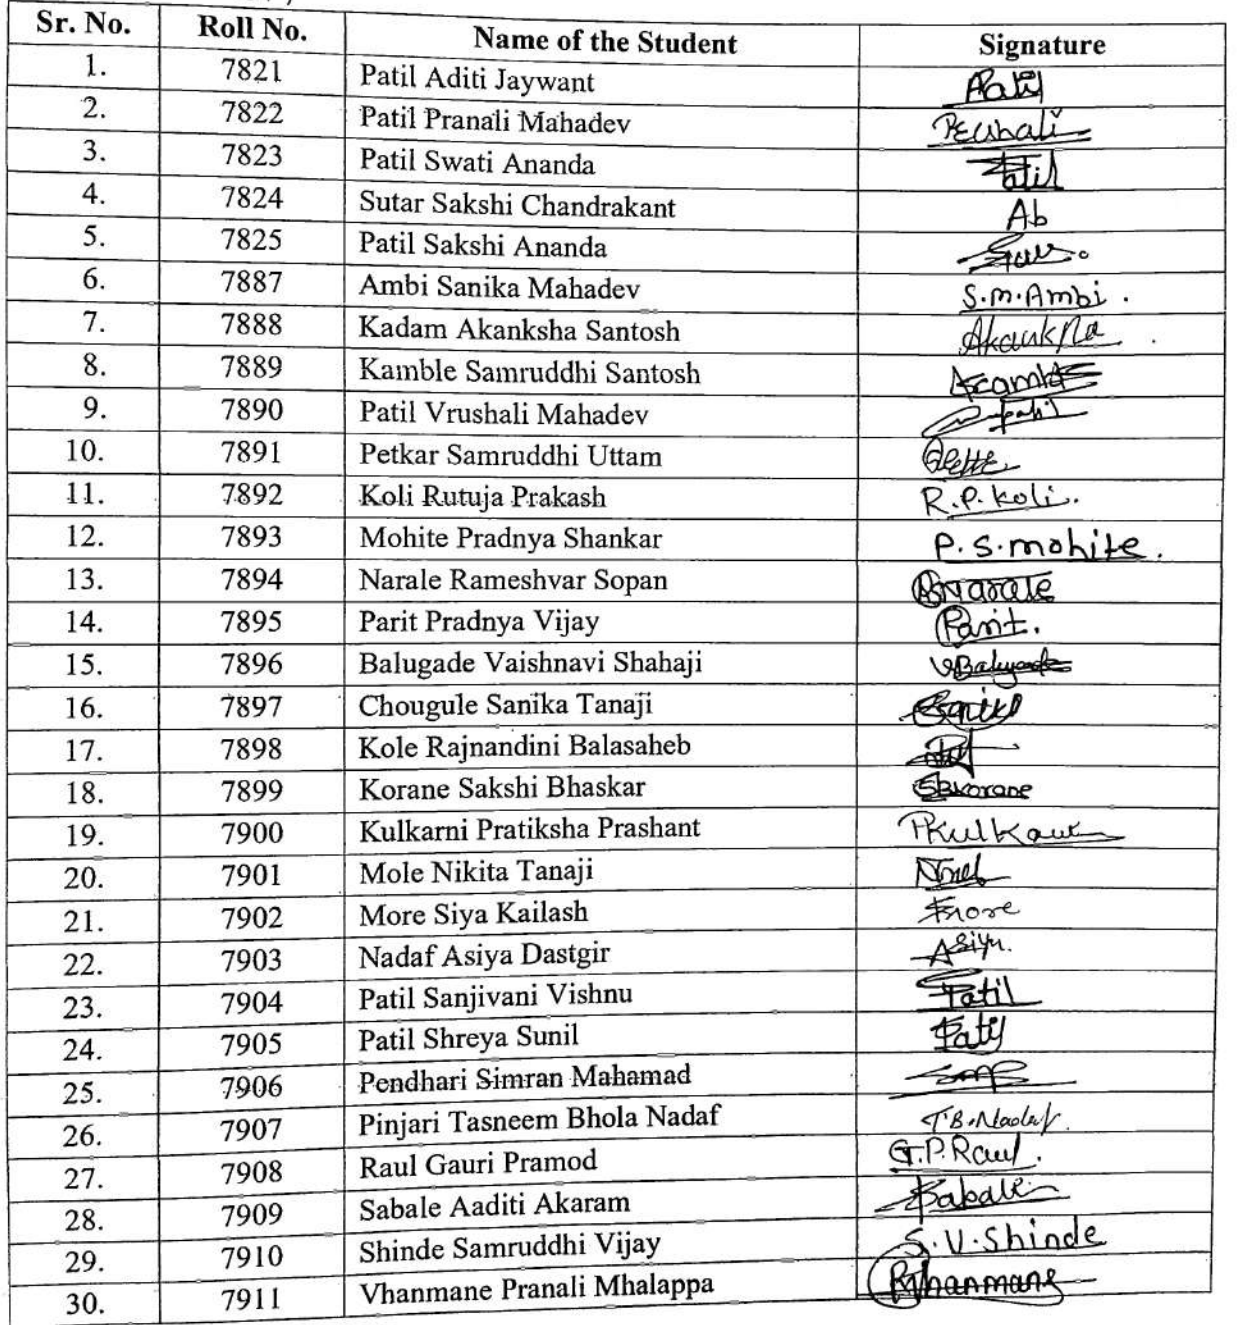 Sr. No. Roll No. Name of the Student Signature
1. 7821 Patil Aditi Jaywant Patil
2. 7822 Patil Pranali Mahadev
3. 7823 Patil Swati Ananda Patil
4. 7824 Sutar Sakshi Chandrakant Ab
5. 7825 Patil Sakshi Ananda
6. 7887 Ambi Sanika Mahadev S.m.Ambi.
7. 7888 Kadam Akanksha Santosh
8. 7889 Kamble Samruddhi Santosh
9. 7890 Patil Vrushali Mahadev Patil
10. 7891 Petkar Samruddhi Uttam
11. 7892 Koli Rutuja Prakash R.P.koli.
12. 7893 Mohite Pradnya Shankar P.S.mohite.
13. 7894 Narale Rameshvar Sopan RNarale
14. 7895 Parit Pradnya Vijay Parit.
15. 7896 Balugade Vaishnavi Shahaji
16. 7897 Chougule Sanika Tanaji Sanika
17. 7898 Kole Rajnandini Balasaheb
18. 7899 Korane Sakshi Bhaskar SBKorane
19. 7900 Kulkarni Pratiksha Prashant
20. 7901 Mole Nikita Tanaji
21. 7902 More Siya Kailash
22. 7903 Nadaf Asiya Dastgir Asiya.
23. 7904 Patil Sanjivani Vishnu Patil
24. 7905 Patil Shreya Sunil Patil
25. 7906 Pendhari Simran Mahamad
26. 7907 Pinjari Tasneem Bhola Nadaf T.B.Nadaf.
27. 7908 Raul Gauri Pramod G.P.Raul.
28. 7909 Sabale Aaditi Akaram Sabale
29. 7910 Shinde Samruddhi Vijay S.V.Shinde
30. 7911 Vhanmane Pranali Mhalappa PVhanmane